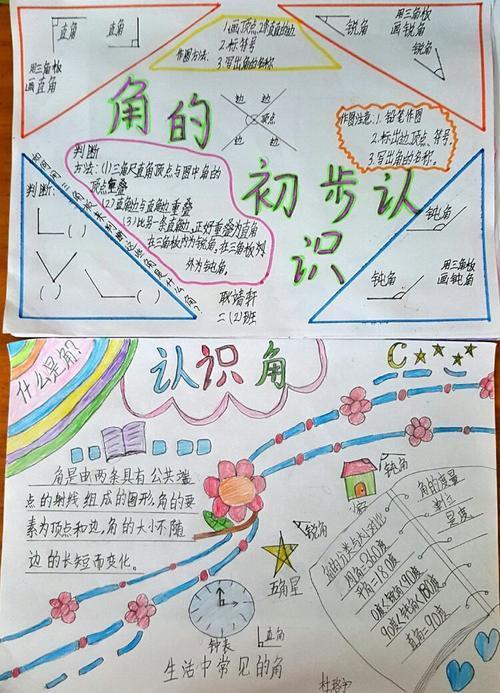 直角
直角
用三角板
画直角
作图方法:
1.画顶点,
2.标符号
3.写出角的名称
锐角
用三角板
画锐角
锐角
角的
初步认
识
边
边
顶点
边
边
作图注意:1.铅笔作图
2.标出边、顶点、符号
3.写出角的名称。
判断
方法:(1)三角尺直角顶点与图中角的
顶点重叠
(2)直角边与直角边重叠
(3)比另一条直角边,正好重叠为直角
在三角板内为锐角,在三角板外
外为钝角。
判断:
( )
( )
( )
钝角
用三角板
画钝角
钝角
二(2)班
什么是角?
认识角
角是由两条具有公共端
点的射线组成的图形,角的要
素为顶点和边,角的大小不随
边的长短而变化。
钝角
锐角
五角星
钟表
直角
生活中常见的角
角的度量
单位
是度
周角=360度
平角=180度
0度<锐角<90度
90度<钝角<180度
直角=90度